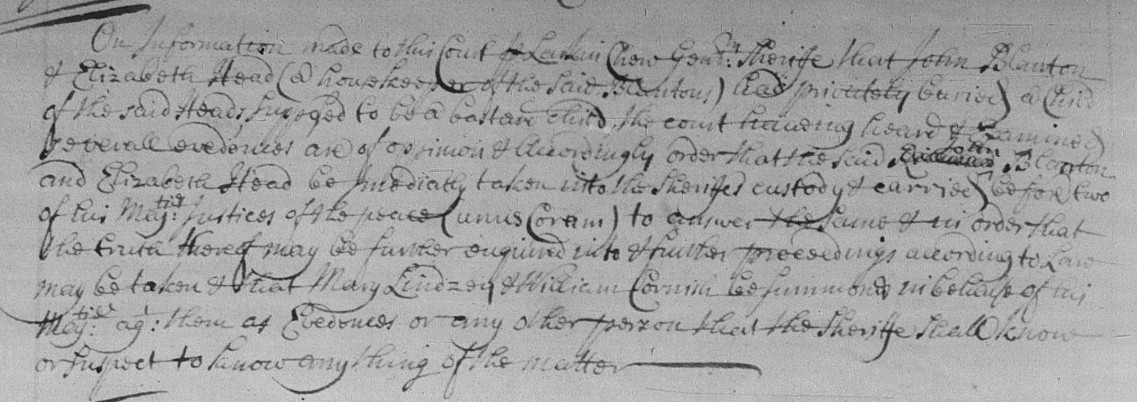 On Information made to this Court p Larkin Chew Gent: Sheriffe that John Blanton
& Elizabeth Head (a housekeeper of the said Blantons) had privately buried a Child
of the said Heads supposed to be a bastard child, the court haveing heard & Examined
severall evedences are of oppinion & Accordingly order that the said John Blanton
and Elizabeth Head be Imediatly taken into the Sheriffs custody & carried before two
of his Maj:ties Justices of the peace (unus Coram) to answer the same & in order that
the truth thereof may be further enquired into & further proceedings according to Law
may be taken & that Mary Lindzey & William Cornini be summoned in behalf of his
Maj:ties ag:t them as Evedences or any other person that the Sheriffe shall know
or suspect to know any thing of the matter